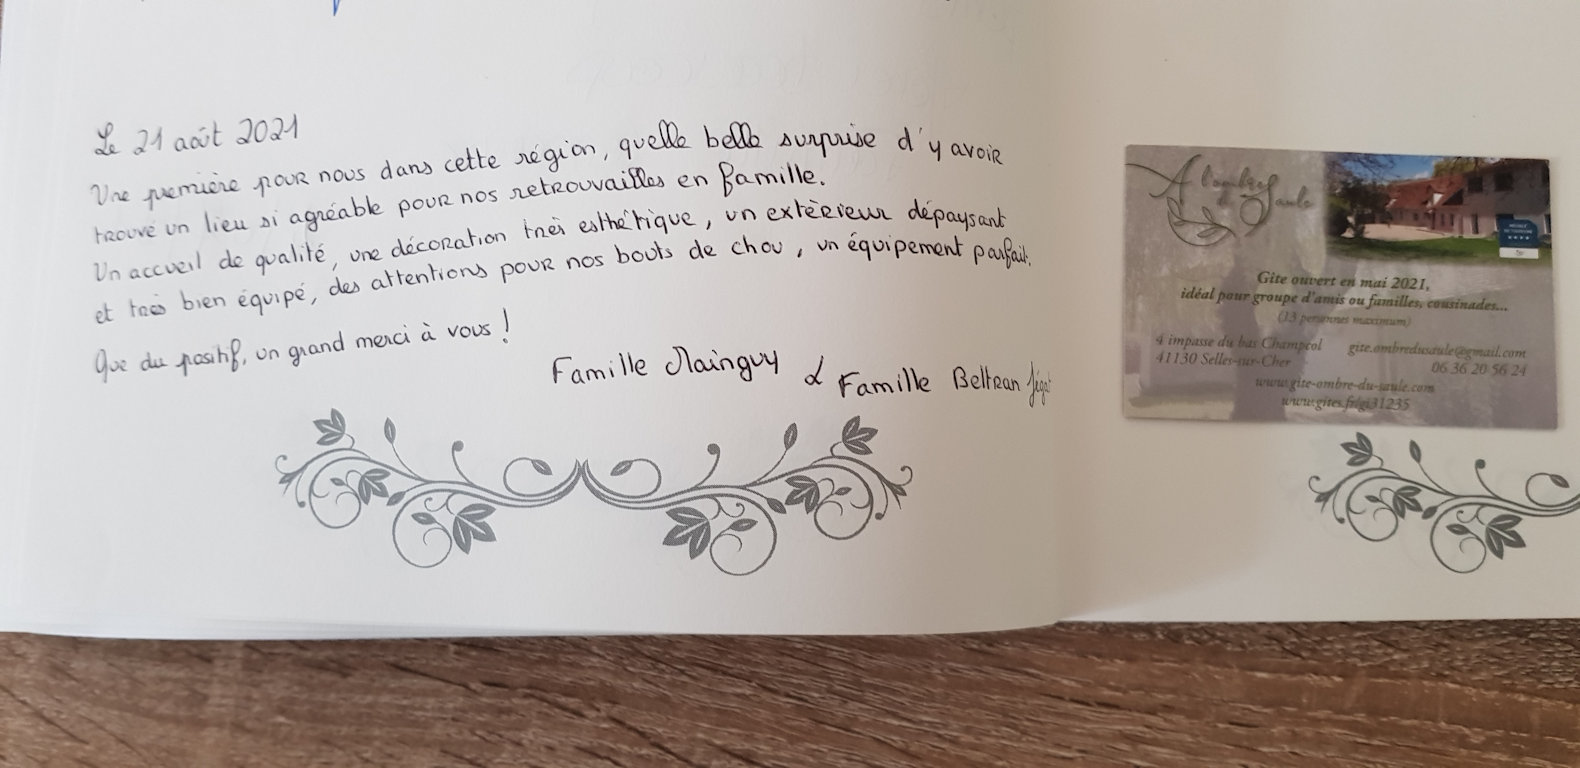 Le 21 août 2021
Une première pour nous dans cette région, quelle belle surprise d'y avoir
trouvé un lieu si agréable pour nos retrouvailles en famille.
Un accueil de qualité, une décoration très esthétique, un extérieur dépaysant
et très bien équipé, des attentions pour nos bouts de chou, un équipement parfait.
Que du positif, un grand merci à vous !
Famille Mainguy & Famille Beltran
A l'ombre Saule
Gîte ouvert en mai 2021,
idéal pour groupe d'amis ou familles, cousinades...
(13 personnes maximum)
4 impasse du bas Champcol
41130 Selles-sur-Cher
gite.ombredusaule@gmail.com
06 36 20 56 24
www.gite-ombre-du-saule.com
www.gites.fr/gi31235